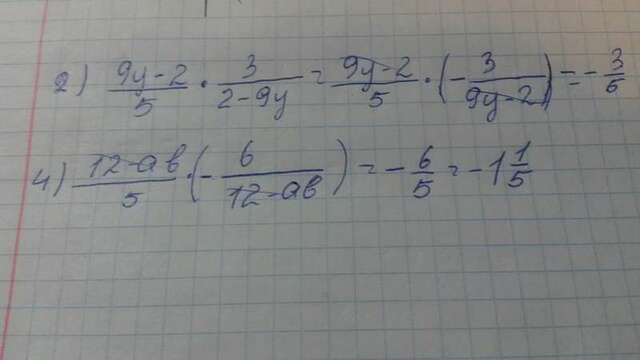 2) \frac{9y-2}{5} \cdot \frac{3}{2-9y} = \frac{9y-2}{5} \cdot \left(-\frac{3}{9y-2}\right) = -\frac{3}{5}
4) \frac{12-ab}{5} \cdot \left(-\frac{6}{12-ab}\right) = -\frac{6}{5} = -1\frac{1}{5}